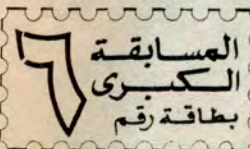 المسابقة
الكبرى
بطاقة رقم
٦